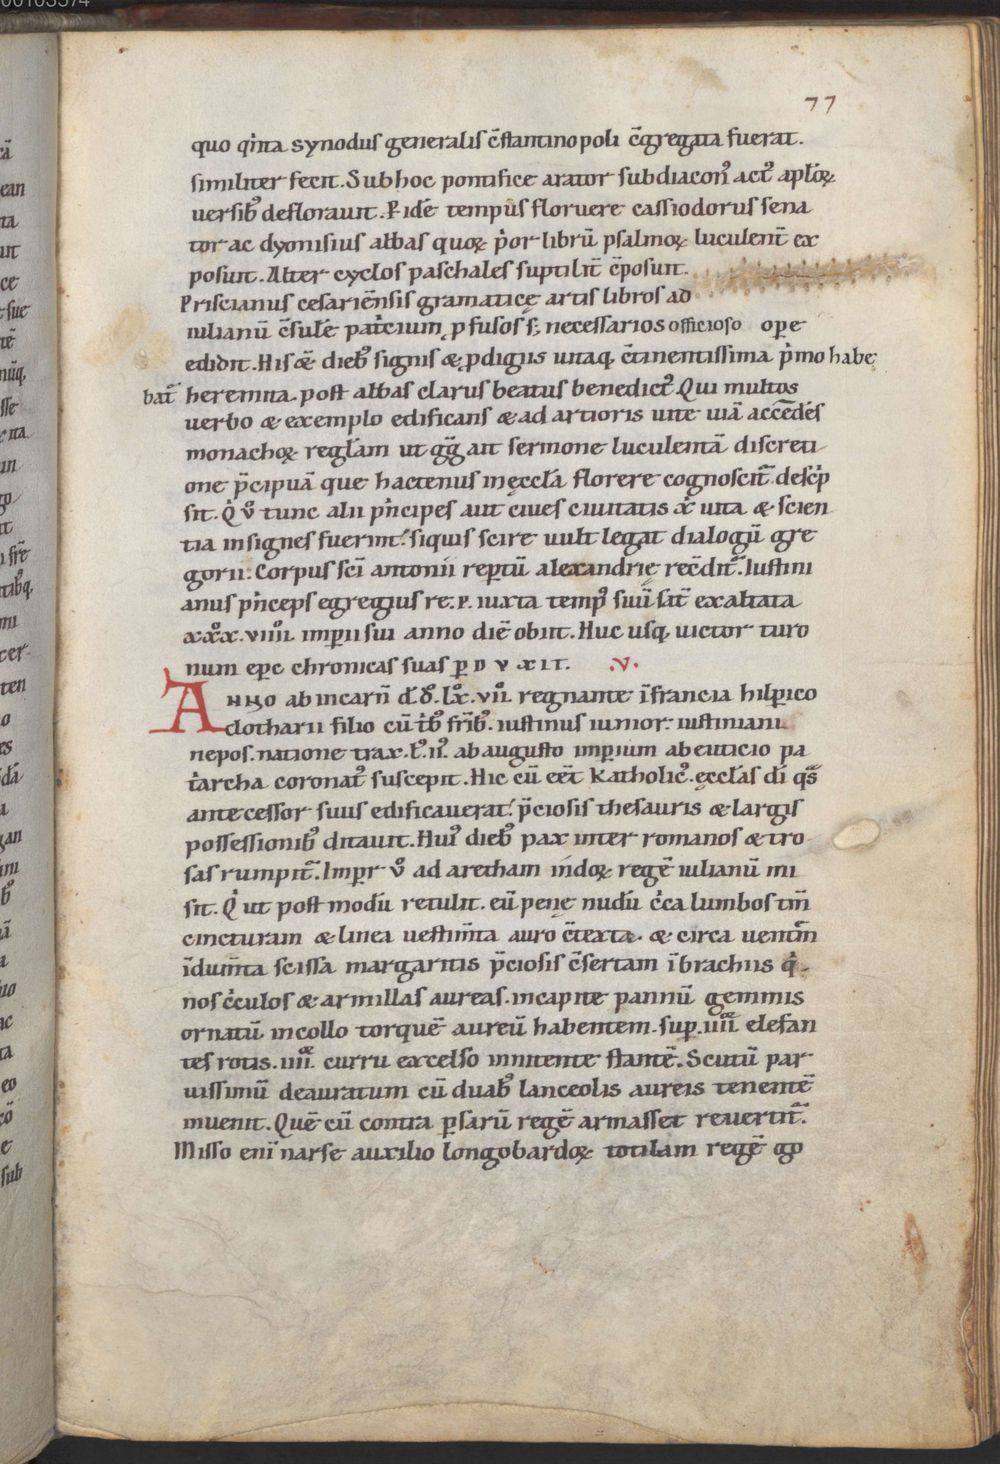 77
quo qͥnta synodus generalis c̄stantinopoli c̄gregata fuerat.
similiter fecit. Sub hoc pontifice arator subdiacon᷒ act᷒ apl̄oꝝ
uersib᷒ deflorauit. P idē tempus floruere cassiodorus sena
tor ac dyonisius abbas quoꝝ pͥor librū psalmoꝝ luculent̄ ex
posuit. Alter cyclos paschales suptilit̄ c̄posuit.
Priscianus cesariēnsis gramaticę artis libros ad
iulianū c̄sulē patͥcium, ꝓfusos s; necessarios officioso ope
edidit. His &̄ dieb᷒ signis & ꝓdigiis uitaq, c̄tinentissima pͥmo habe
bat̄ heremita. post abbas clarus beatus benedict᷒. Qui multos
uerbo & exemplo edificans & ad artioris uite uiā accēdēs
monachoꝝ regl̄am ut gḡ ait sermone luculentā discreti
one p̄cipuā que hactenus in ęccl̄a florere cognoscit̄. descͥp
sit. Qͥ v᷒ tunc alii pͥncipes aut ciues ciuitatis xͥ uita & scien
tia insignes fuerint. siquis scire uult legat dialogū gre
gorii. Corpus sc̄i antonii reptū alexandrię rec̄dit̄. Iustini
anus pͥnceps egregius re.p. iuxta temp᷒ suū sat̄ exaltata
xxͦx.viiii. imperii sui anno diē obiit. Huc usq, uictor turo
num epc chronicas suas p D V XIT. .V.
ANNO ab incarn̄ d̄. dͦ. lxͦ. vii. regnante ī francia hilperico
clotharii filio cū tͥb᷒ fr̄ib᷒. iustinus iunior. iustiniani
nepos. natione trax. lͦ.iiͦ. ab augusto imperium ab euticio pa
tͥarcha coronat᷒ suscepit. Hic cū eēt katholic᷒. ęccl̄as dī qᷓs
antecessor suus edificauerat. p̄ciosis thesauris & largis
possessionib᷒ ditauit. Hui᷒ dieb᷒ pax inter romanos & tro
sas rumpit̄. Impr v᷒ ad aretham indoꝝ regē iulianū mi
sit. Qͥ ut postmodū retulit. eū pene nudū cͥca lumbos tm̄
cincturam & linea uestim̄ta auro c̄texta. & circa uentrē
īdum̄ta scissa margaritis p̄ciosis c̄sertam ī brachiis qͥ
nos cͥculos & armillas aureas. in capite pannū gemmis
ornatū. in collo torquē aureū habentem. sup. iiii. elefan
tes rotis. iiii. curru excelso innitente stantē. Scutū par
uissimū deauratum cū duab᷒ lanceolis aureis tenentē
inuenit. Quē cū contra psarū regē armasset reuertit̄.
Misso enī narse auxilio longobardoꝝ totilam regē go